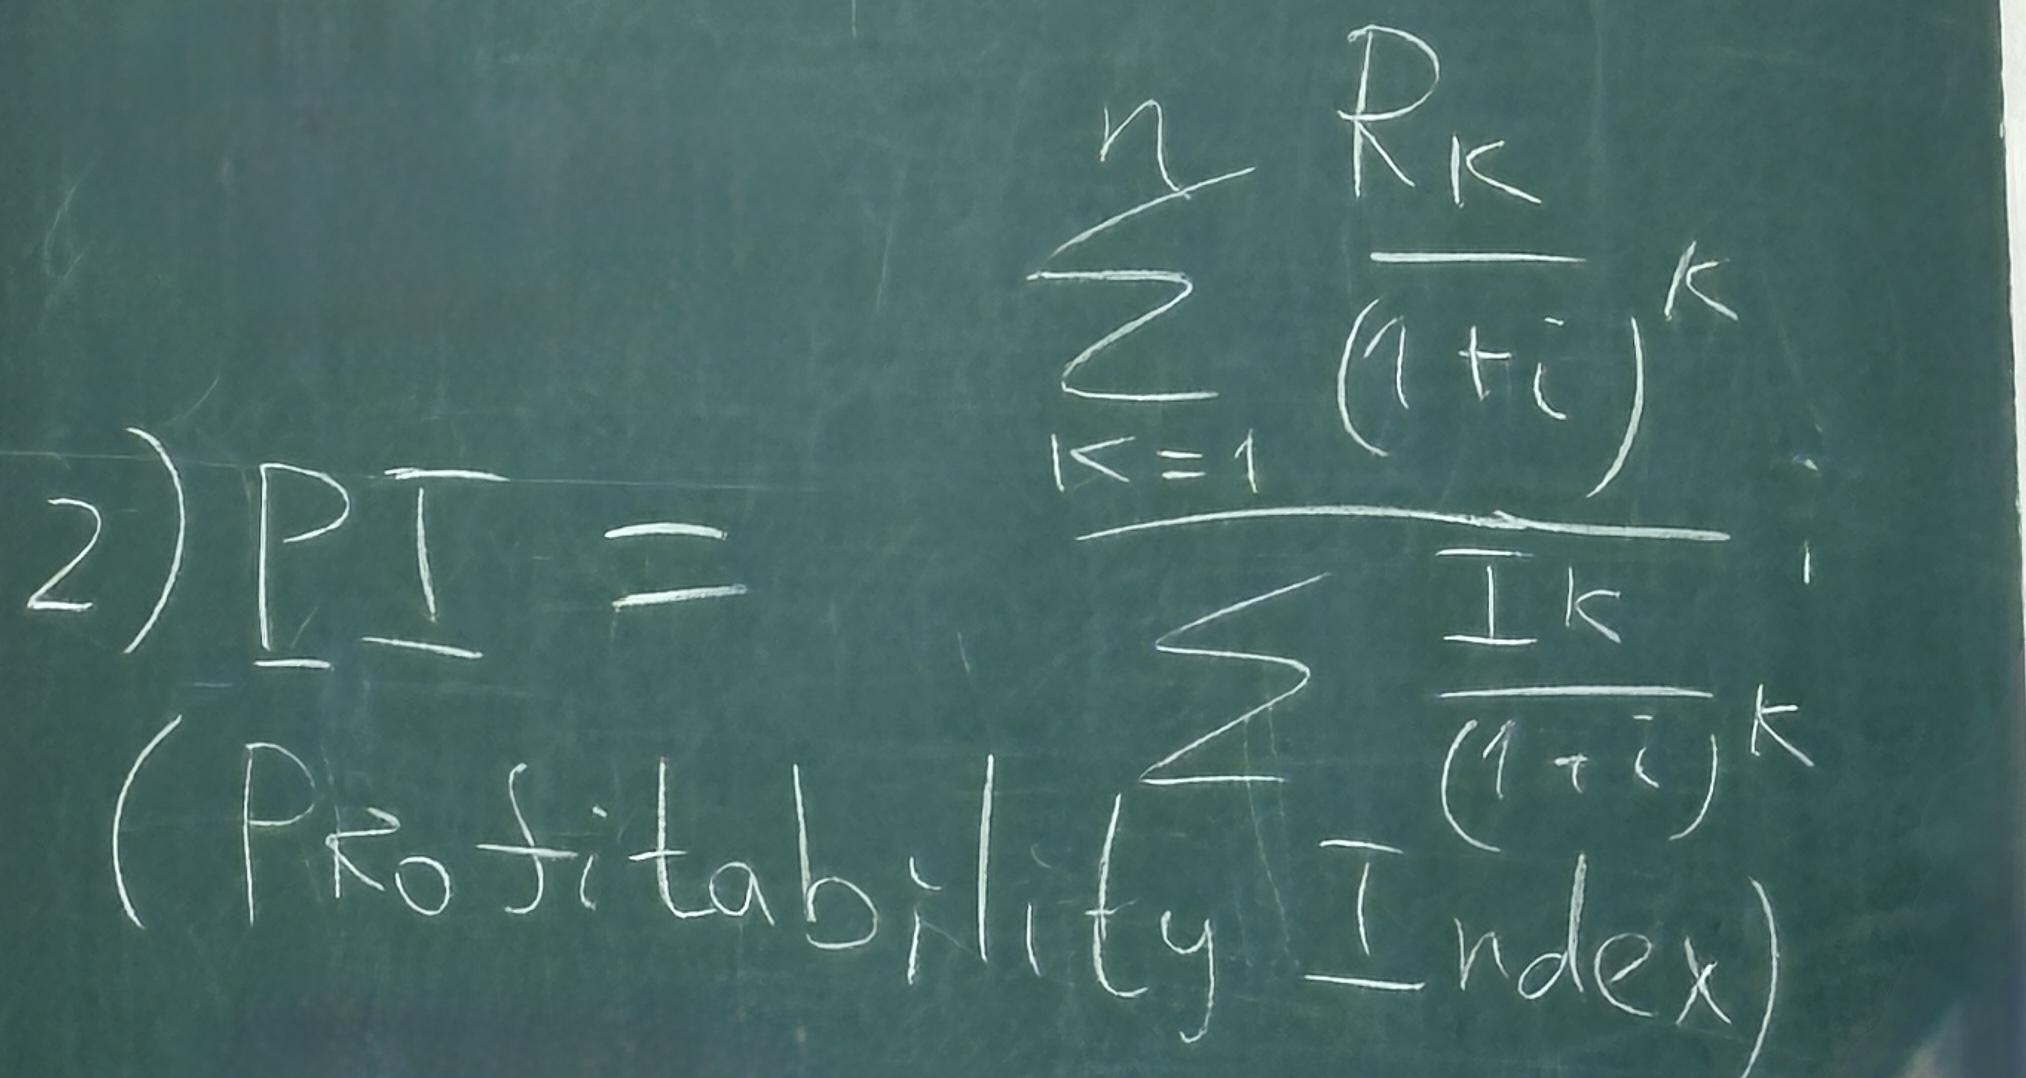 2) PI = \frac{\sum_{K=1}^{n} \frac{R_K}{(1+i)^K}}{\sum \frac{I_K}{(1+i)^K}} ;
(PRofitability Index)